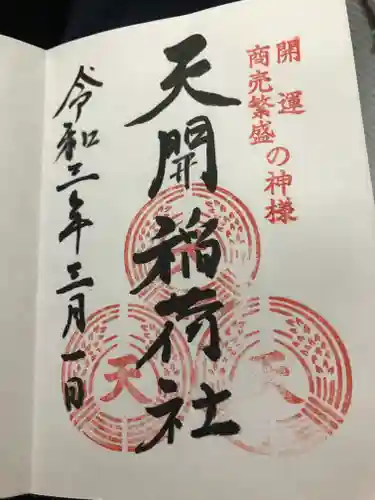 開運
商売繁盛の神様
天開稲荷社
天
天
令和三年三月一日